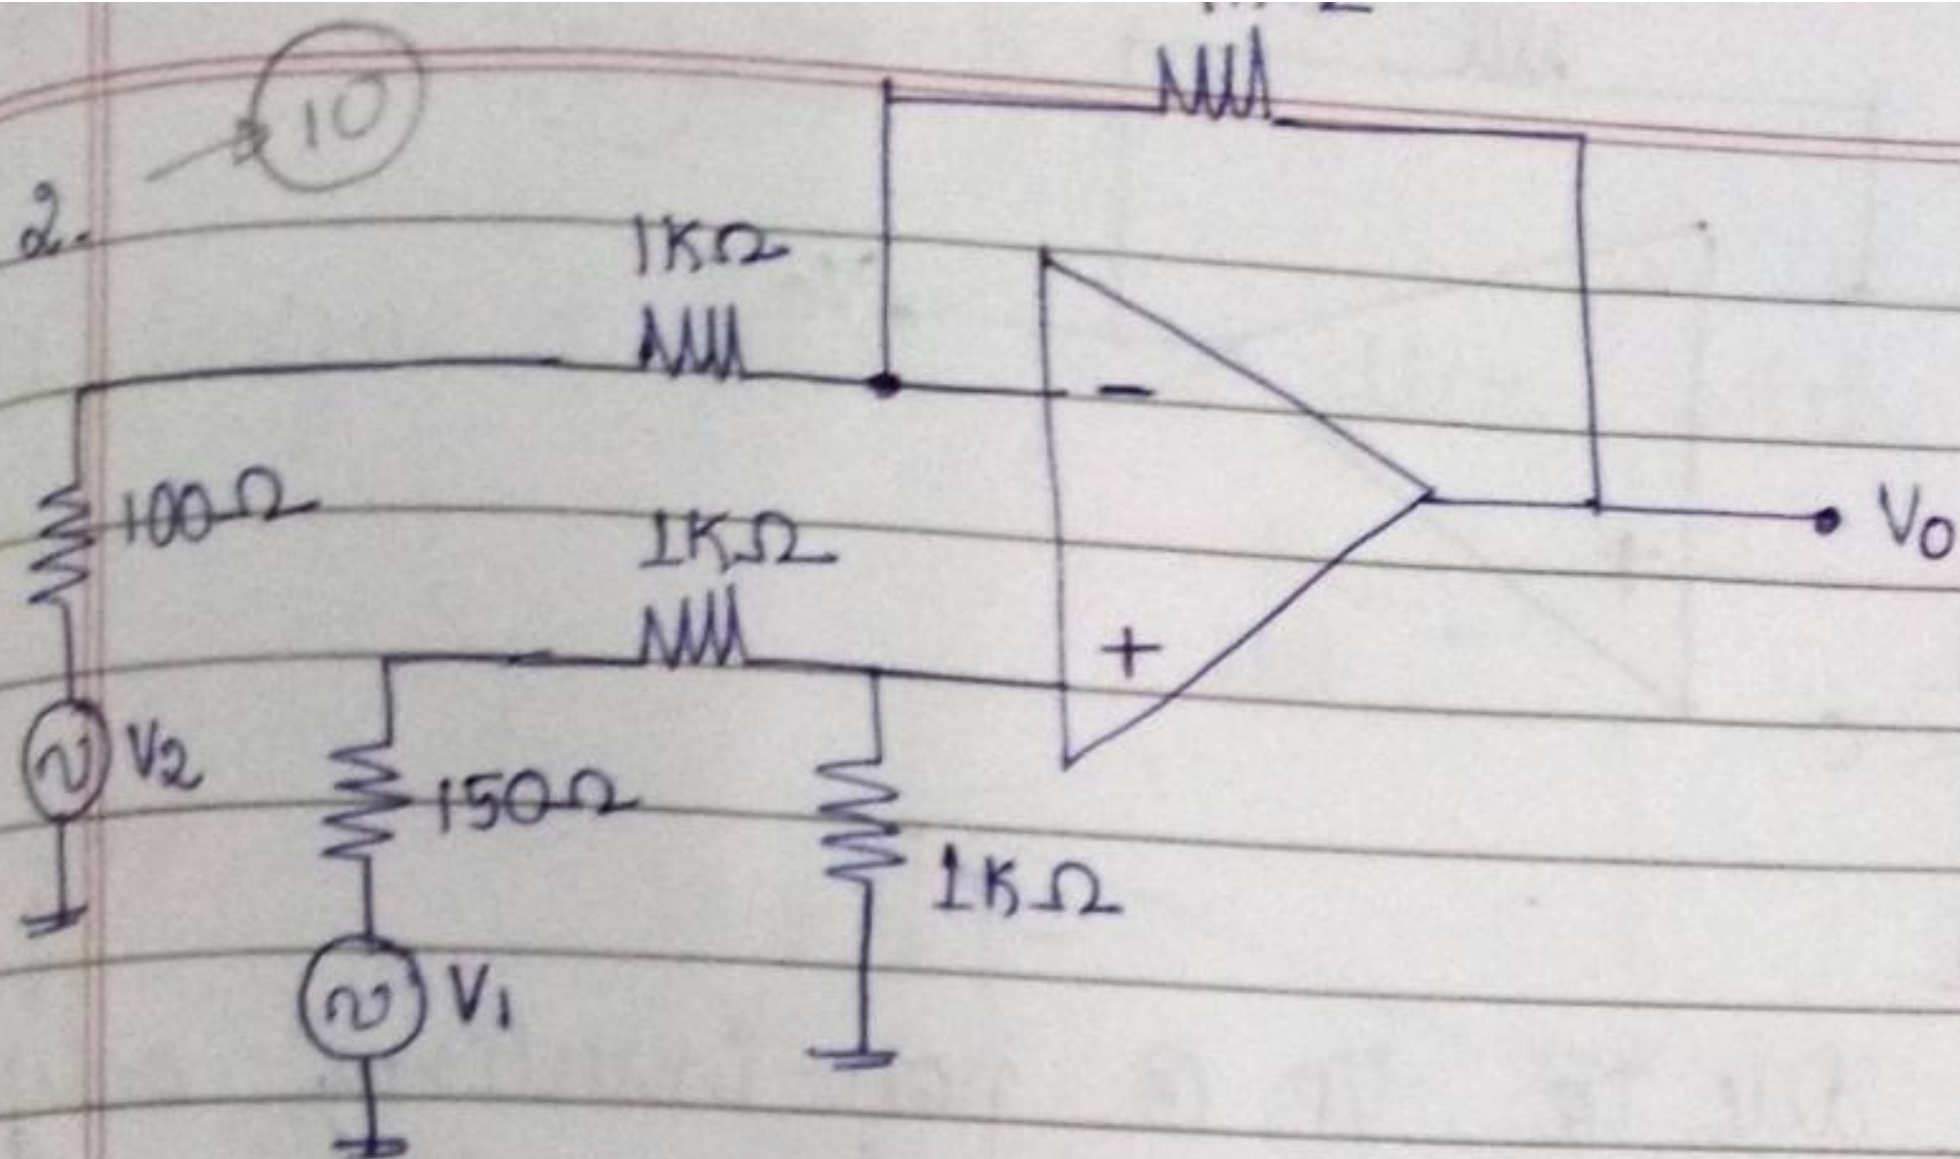 10
2.
1KΩ
100Ω
1KΩ
-
V0
+
V2
150Ω
1KΩ
V1